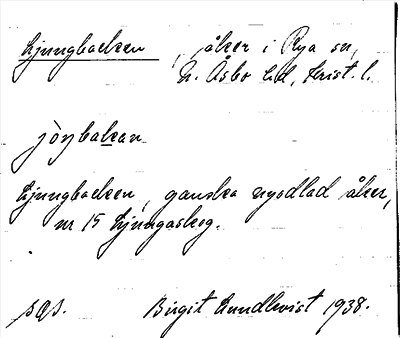 Ljungbacken, åker i Rya sn,
N. Åsbo hd, Krist. l.
jòŋbakan
Ljungbacken, ganska nyodlad åker,
nr 15 Ljungaskog.
sas. Birgit Lundkvist 1938.